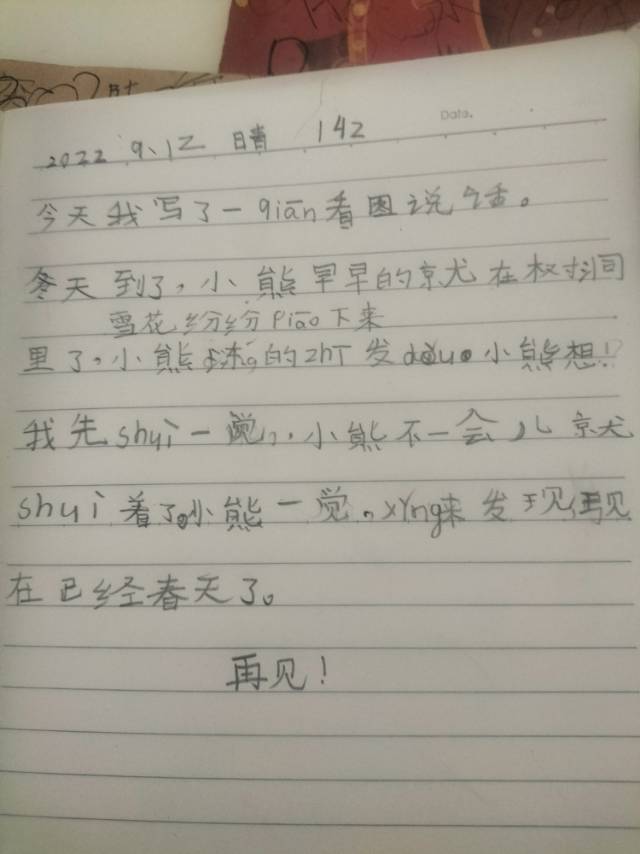 Data.
2022 9.12 晴 142
今天我写了一qiān看图说话。
冬天到了,小熊早早的京尤在树洞
雪花纷纷Piāo下来
里了。小熊 的zhī发dǒu。小熊想!
我先shuì一觉,小熊不一会儿京尤
shuì着了。小熊一觉。xǐng来发现现
在已经春天了。
再见!